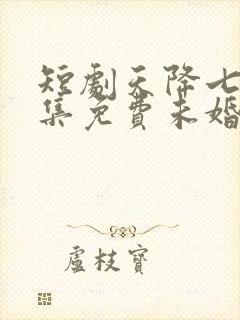 短劇天降七
集免費未婚
盧枝寶